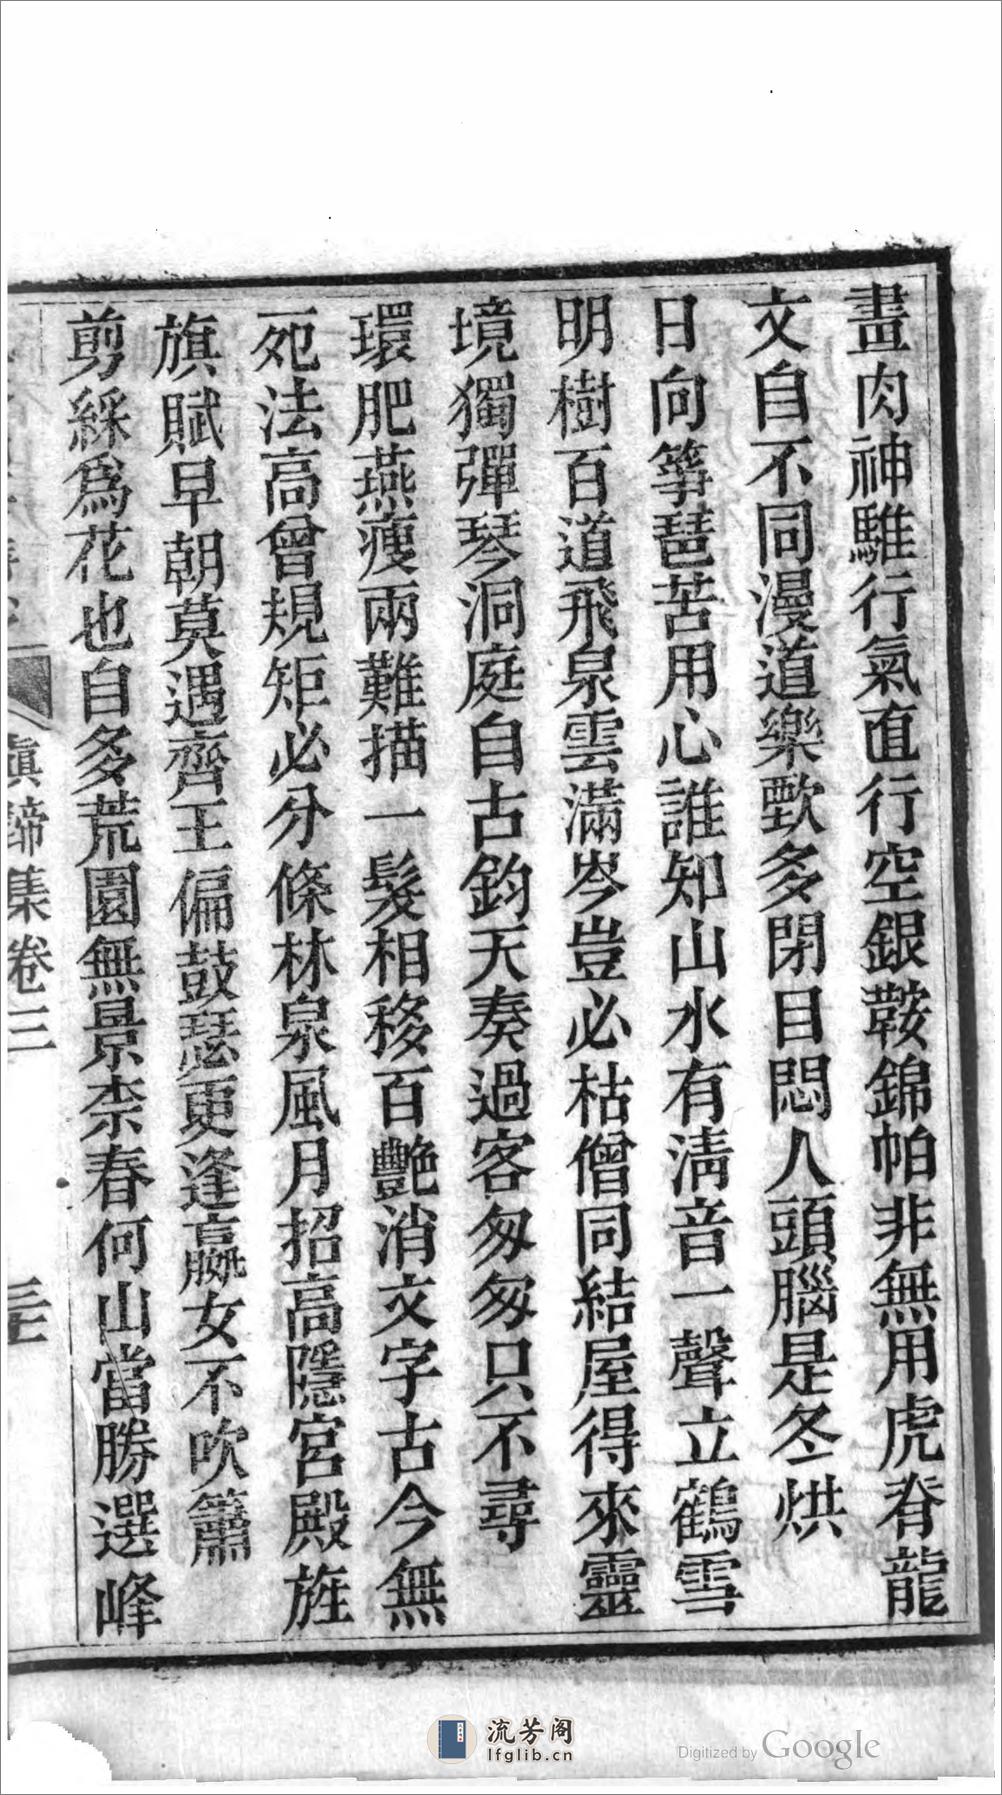 畫肉神騅行氣直行空銀鞍錦帕非無用虎脊龍
文自不同漫道樂歌多閉目悶人頭腦是冬烘
日向箏琶苦用心誰知山水有淸音一聲立鶴雪
明樹百道飛泉雲滿岑豈必枯僧同結屋得來靈
境獨彈琴洞庭自古鈞天奏過客匆匆只不尋
環肥燕瘦兩難描一髮相移百艶消文字古今無
死法高曾規矩必分條林泉風月招高隱宮殿旌
旗賦早朝莫遇齊王偏鼓瑟更逢嬴女不吹簫
剪綵爲花也自多荒園無景柰春何山當勝選峰
眞諦集卷三
三十三
流芳阁
lfglib.cn
Digitized by Google